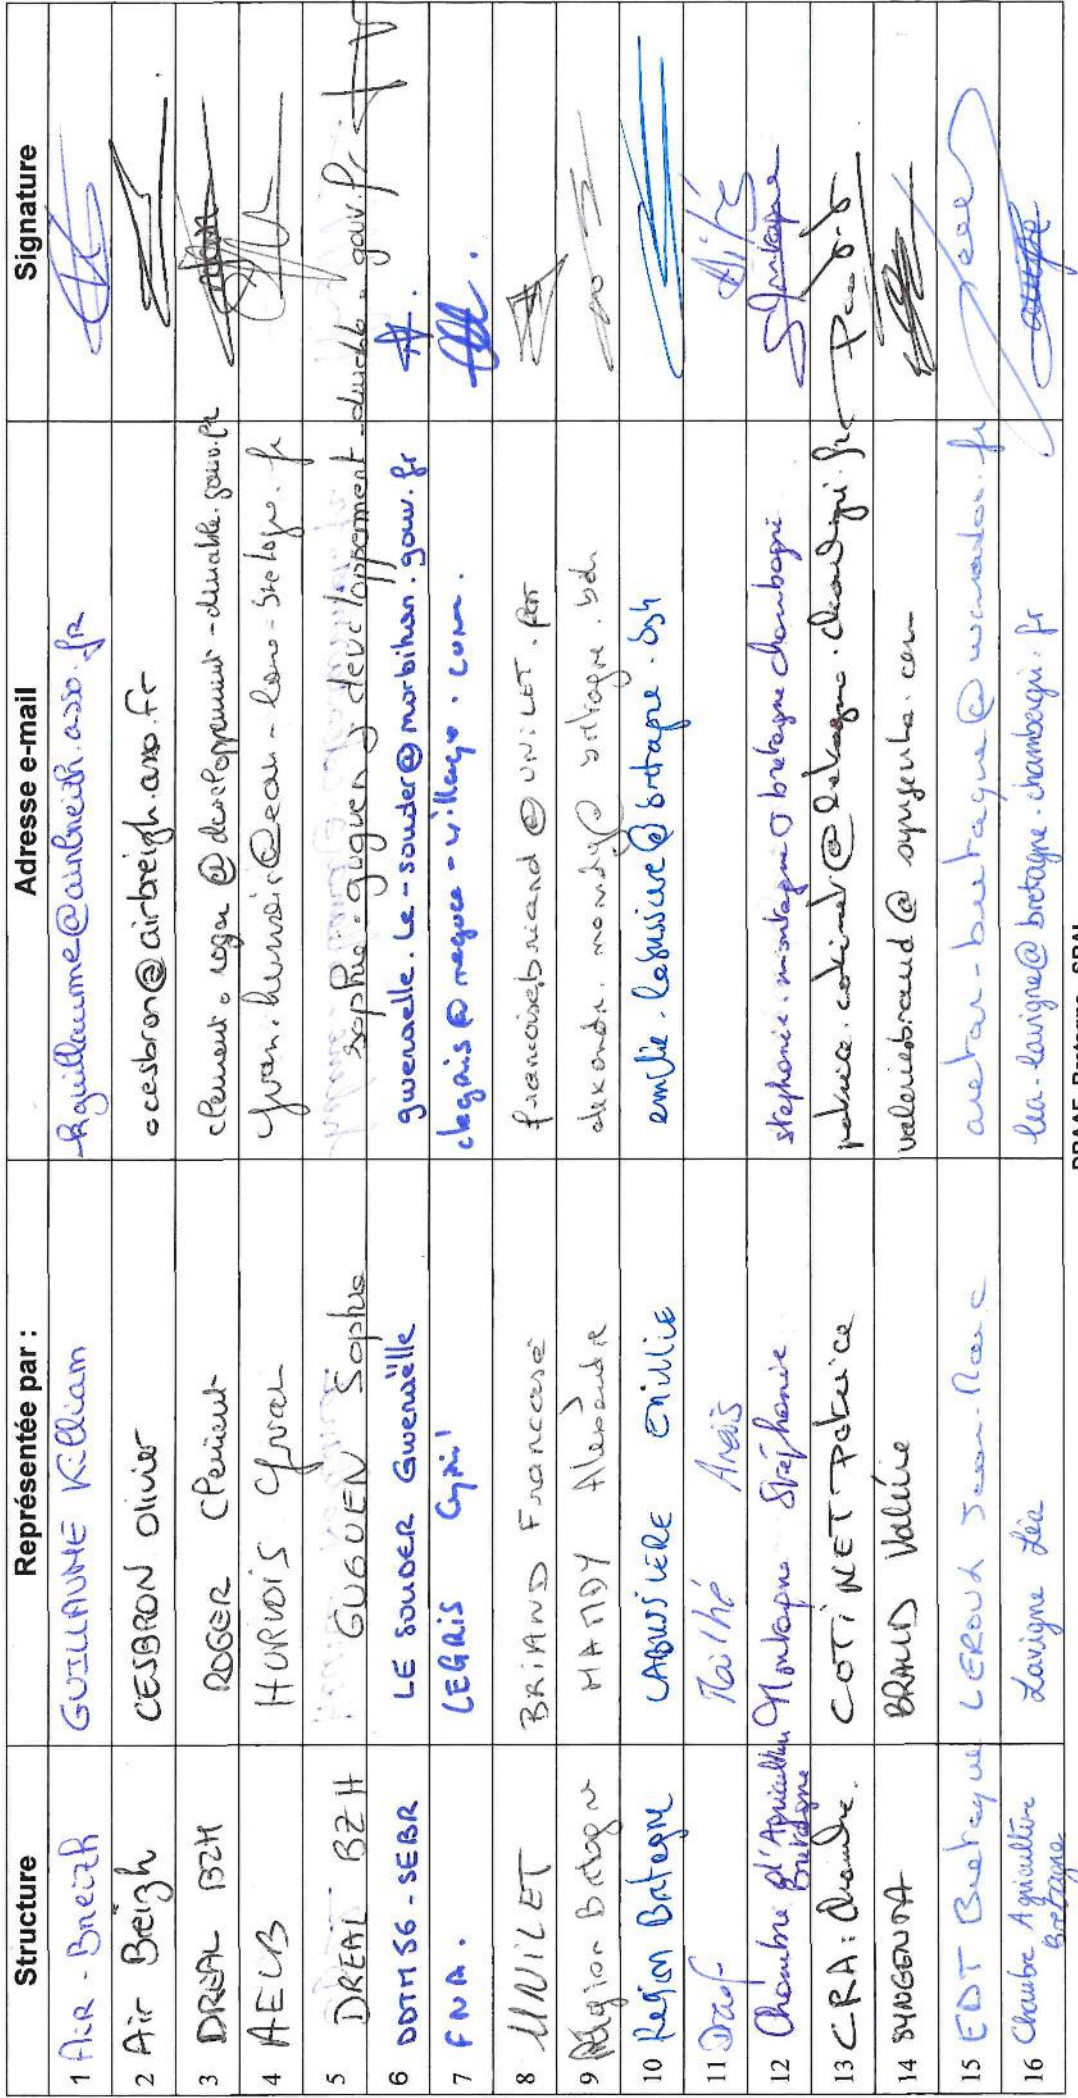 Structure Représentée par : Adresse e-mail Signature
1 AiR - Breizh GUILLAUME Killiam kguillaume@airbreizh.asso.fr
2 Air Breizh CESBRON Olivier ocesbron@airbreizh.asso.fr
3 DREAL BZH ROGER Clément clement.roger@developpement-durable.gouv.fr
4 AELB HURVOIS Yvan
5 DREAL BZH GUGUEN Sophie sophie.guguen@developpement-durable.gouv.fr
6 DDTM 56 - SEBR LE SOUDER Gwenaëlle gwenaelle.le-souder@morbihan.gouv.fr
7 FNA. LEGRIS Cyril clegris@negoce-village.com.
8 UNILET BRIAND Françoise francoisebriand@UNILET.
9 Région Bretagne Alexandre bretagne.bzh
10 Région Bretagne LABUSSIERE Emilie emilie.labussiere@bretagne.bzh
11 Draaf Maïlhé Anaïs
12 Chambre d'Agriculture Bretagne Montagne Stéphanie stephanie.montagne@bretagne.chambagri
13 CRA: COTINET Patrice patrice.cotinet@bretagne.chambagri.fr
14 SYNGENTA BRAUD Valérie valerie.braud@syngenta.com
15 EDT Bretagne LEROUX Jean-Marc @wanadoo.fr
16 Chambre Agriculture Bretagne Lavigne Léa lea.lavigne@bretagne.chambagri.fr
DRAAF Bretagne - SRAL